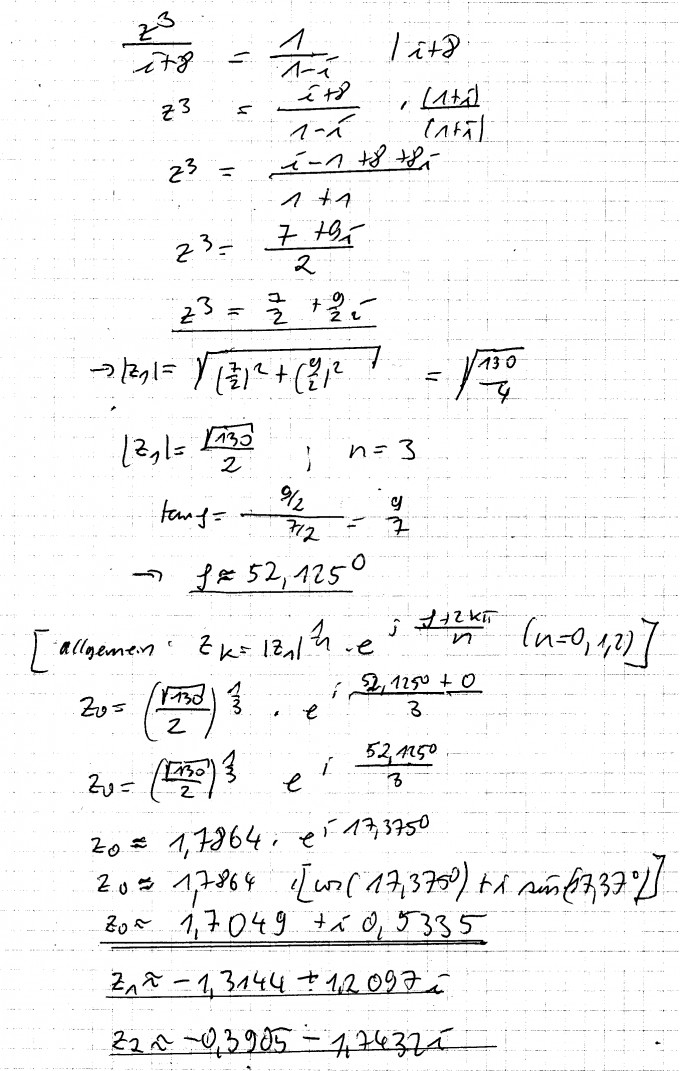 z³/(i+8) = 1/(1-i) | i+8
z³ = (i+8)/(1-i) · (1+i)/(1+i)
z³ = (i-1+8+8i)/(1+1)
z³ = (7+9i)/2
z³ = 7/2 + 9/2 i
→ |z₁| = √((7/2)² + (9/2)²) = √(130/4)
|z₁| = √130/2 ; n = 3
tan φ = (9/2)/(7/2) = 9/7
→ φ ≈ 52,125°
[allgemein: z_k = |z₁|^(1/n) · e^(i (φ+2kπ)/n) (n=0,1,2)]
z₀ = (√130/2)^(1/3) · e^(i (52,125° + 0)/3)
z₀ = (√130/2)^(1/3) e^(i 52,125°/3)
z₀ ≈ 1,7864 · e^(i 17,375°)
z₀ ≈ 1,7864 · [cos(17,375°) + i sin(17,37°)]
z₀ ≈ 1,7049 + i 0,5335
z₁ ≈ -1,3144 + 1,2097 i
z₂ ≈ -0,3905 - 1,7432 i